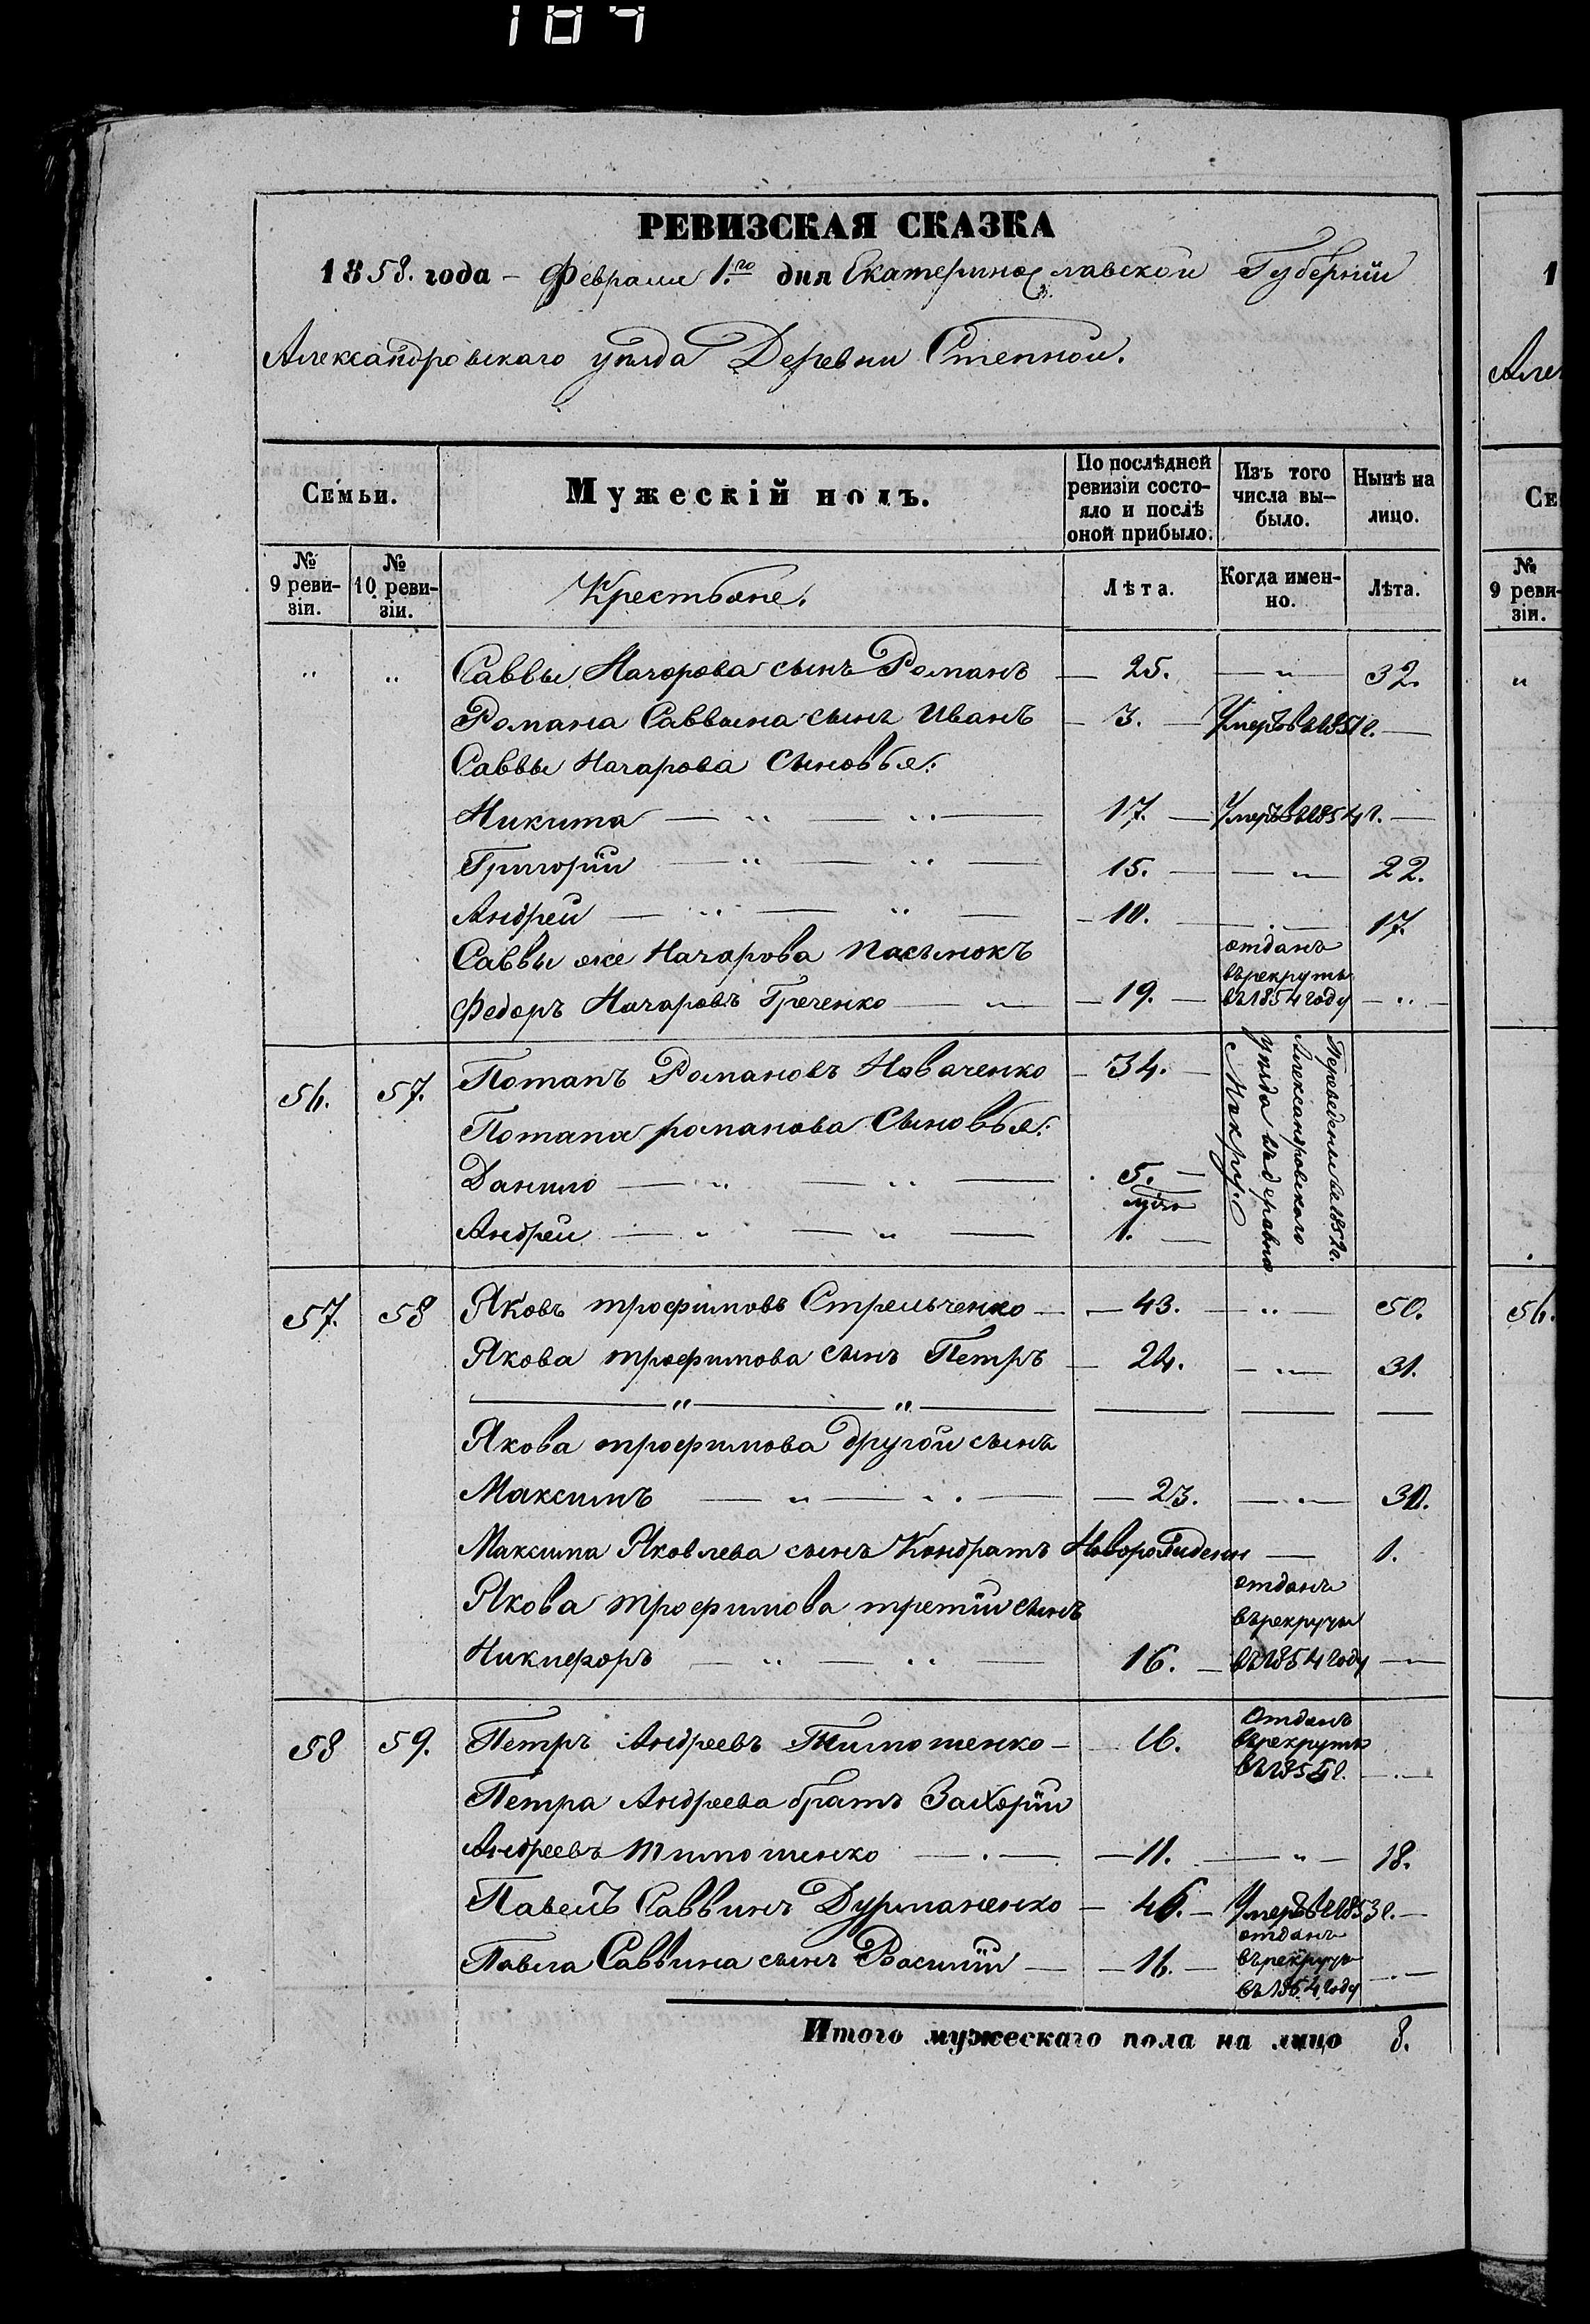 187
РЕВИЗСКАЯ СКАЗКА
1858. года - Февраля 1.го дня Екатеринославской Губерніи
Александровскаго уѣзда Деревни Степной.
Семьи.
Мужескій полъ.
По послѣдней ревизіи состояло и послѣ оной прибыло.
Изъ того числа выбыло.
Нынѣ на лицо.
№ 9 ревизіи.
№ 10 ревизіи.
Крестьяне.
Лѣта.
Когда именно.
Лѣта.
Саввы Назорова сынъ Романъ — 25. — „ — 32.
Романа Саввина сынъ Иванъ — 3. — Умеръ въ 1851 г. —
Саввы Назарова Сыновья:
Никита — „ — „ — 17. — Умеръ въ 1854 г. —
Григорій — „ — „ — 15. — „ — 22.
Андрей — „ — „ — 10. — „ — 17.
Саввы же Назарова пасынокъ
Федоръ Назаровъ Греченко — „ — 19. — отданъ въ рекруты въ 1854 году — „ —
56. 57. Потапъ Романовъ Новаченко — 34. —
Переведены въ 1852 г. Александровского уѣзда въ деревню
Потапа романова Сыновья:
Данило — „ — „ — 5. —
Андрей — „ — „ — 1. —
57. 58 Яковъ трофимовъ Стрельченко — 43. — „ — 50.
Якова трофимова сынъ Петръ — 24. — „ — 31.
— „ — „ —
Якова трофимова другой сынъ
Максимъ — „ — „ — 23. — „ — 30.
Максима Яковлева сынъ Кондратъ Новорожденн — 1.
Якова трофимова третій сынъ
Никифоръ — „ — „ — 16. — отданъ въ рекруты въ 1854 году —
58 59. Петръ Андреевъ Тимошенко — 16. Отданъ въ рекруты въ 1854 г. —
Петра Андреева братъ Захарій
Андреевъ Тимошенко — 11. — „ — 18.
Павелъ Саввинъ Дурманенко — 46. — Умеръ въ 1853 г. —
Павла Саввина сынъ Василій — 16. — отданъ въ рекруты въ 1854 году —
Итого мужескаго пола на лицо 8.
1
Алек
Се
№ 9 ревизіи.
„
56.